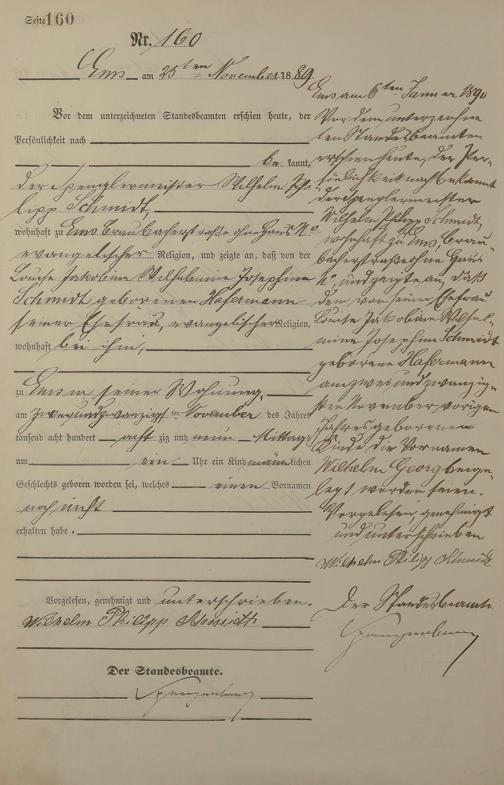 Seite 160
Nr. 160
Ems am 25ten November 1889.
Vor dem unterzeichneten Standesbeamten erschien heute, der
Persönlichkeit nach
be kannt,
der Spenglermeister Wilhelm Phi-
lipp Schmidt,
wohnhaft zu Ems Braubacherstraße ohne Haus No
evangelischer Religion, und zeigte an, daß von der
Louise Jakobine Wilhelmine Josephine
Schmidt geborenen Hafermann
seiner Ehefrau, evangelischer Religion,
wohnhaft bei ihm,
zu Ems in seiner Wohnung,
am zweiundzwanzigsten November des Jahres
tausend acht hundert acht zig und neun Mittags
um ein Uhr ein Kind männlichen
Geschlechts geboren worden sei, welches einen Vornamen
noch nicht
erhalten habe.
Vorgelesen, genehmigt und unterschrieben.
Wilhelm Philipp Schmidt
Der Standesbeamte.
Ems am 6ten Januar 1890
Vor dem unterzeichne
ten Standesbeamten
erschien heute, der Per-
sönlichkeit nach bekannt
der Spenglermeister
Wilhelm Philipp Schmidt,
wohnhaft zu Ems, Brau-
bacherstraße ohne Haus
No, und zeigte an, daß
dem, von seiner Ehefrau
Louise Jakobine Wilhel-
mine Josephine Schmidt
geborene Hafermann
am zwei und zwanzig-
sten November vorigen
Jahres geborenen
Kinde die Vornamen
Wilhelm Georg beige-
legt worden seien.
Vorgelesen, genehmigt
und unterschrieben
Wilhelm Philipp Schmidt
Der Standesbeamte